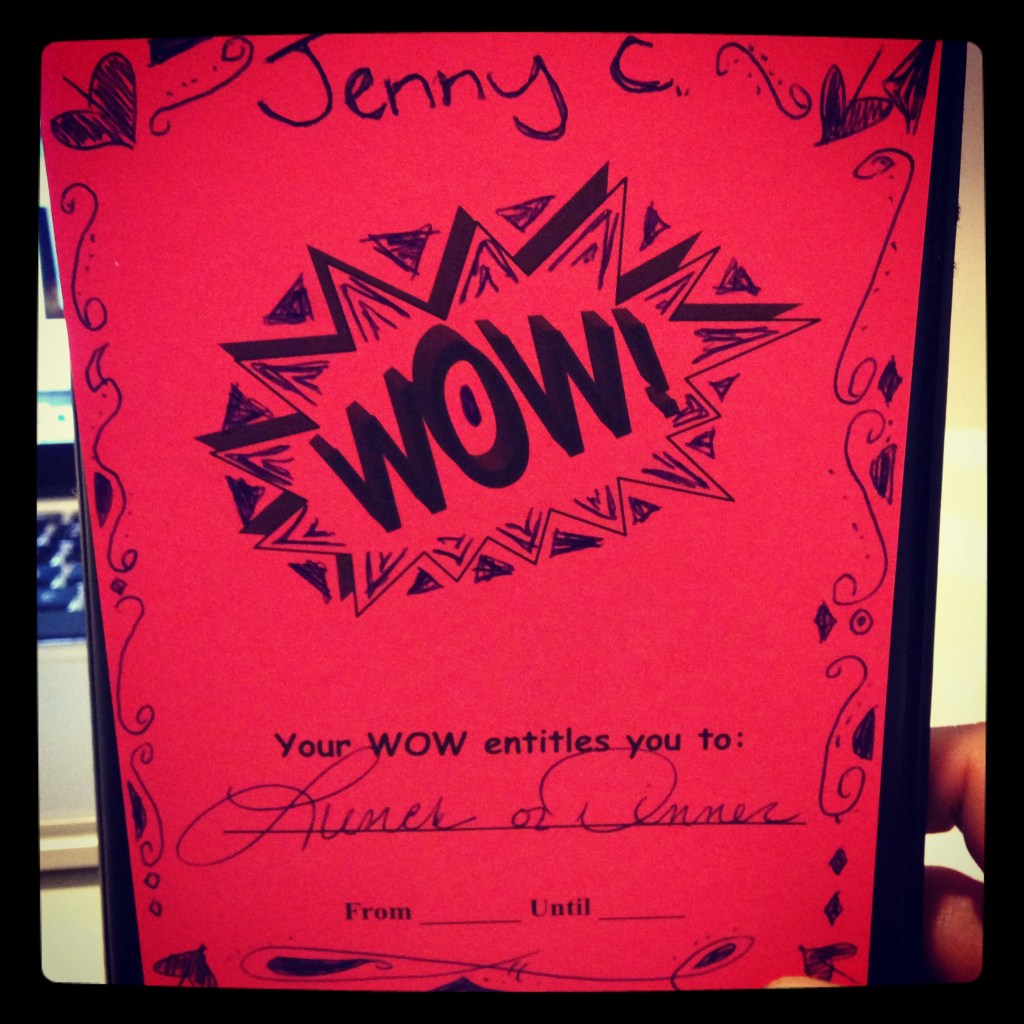 Jenny C.
WOW!
Your WOW entitles you to:
Lunch or Dinner
From ______ Until ______